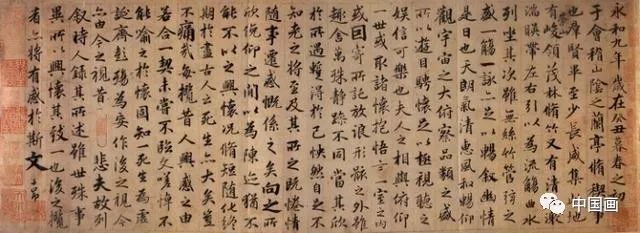 永和九年歲在癸丑暮春之初
于會稽山陰之蘭亭脩稧事
也群賢畢至少長咸集此地
有峻領茂林脩竹又有清流激
湍暎帶左右引以為流觴曲水
列坐其次雖無絲竹管弦之
盛一觴一詠亦足以暢敘幽情
是日也天朗氣清惠風和暢仰
觀宇宙之大俯察品類之盛
所以遊目騁懷足以極視聽之
娛信可樂也夫人之相與俯仰
一世或取諸懷抱悟言一室之內
或因寄所託放浪形骸之外雖
趣舍萬殊靜躁不同當其欣
於所遇蹔得於己怏然自足不
知老之將至及其所之既惓情
隨事遷感慨係之矣向之所
欣俛仰之間以為陳迹猶不
能不以之興懷況脩短隨化終
期於盡古人云死生亦大矣豈
不痛哉每攬昔人興感之由
若合一契未嘗不臨文嗟悼不
能喻之於懷固知一死生為虛
誕齊彭殤為妄作後之視今
亦由今之視昔 悲夫故列
敘時人錄其所述雖世殊事
異所以興懷其致一也後之攬
者亦將有感於斯文 子昂
中国画